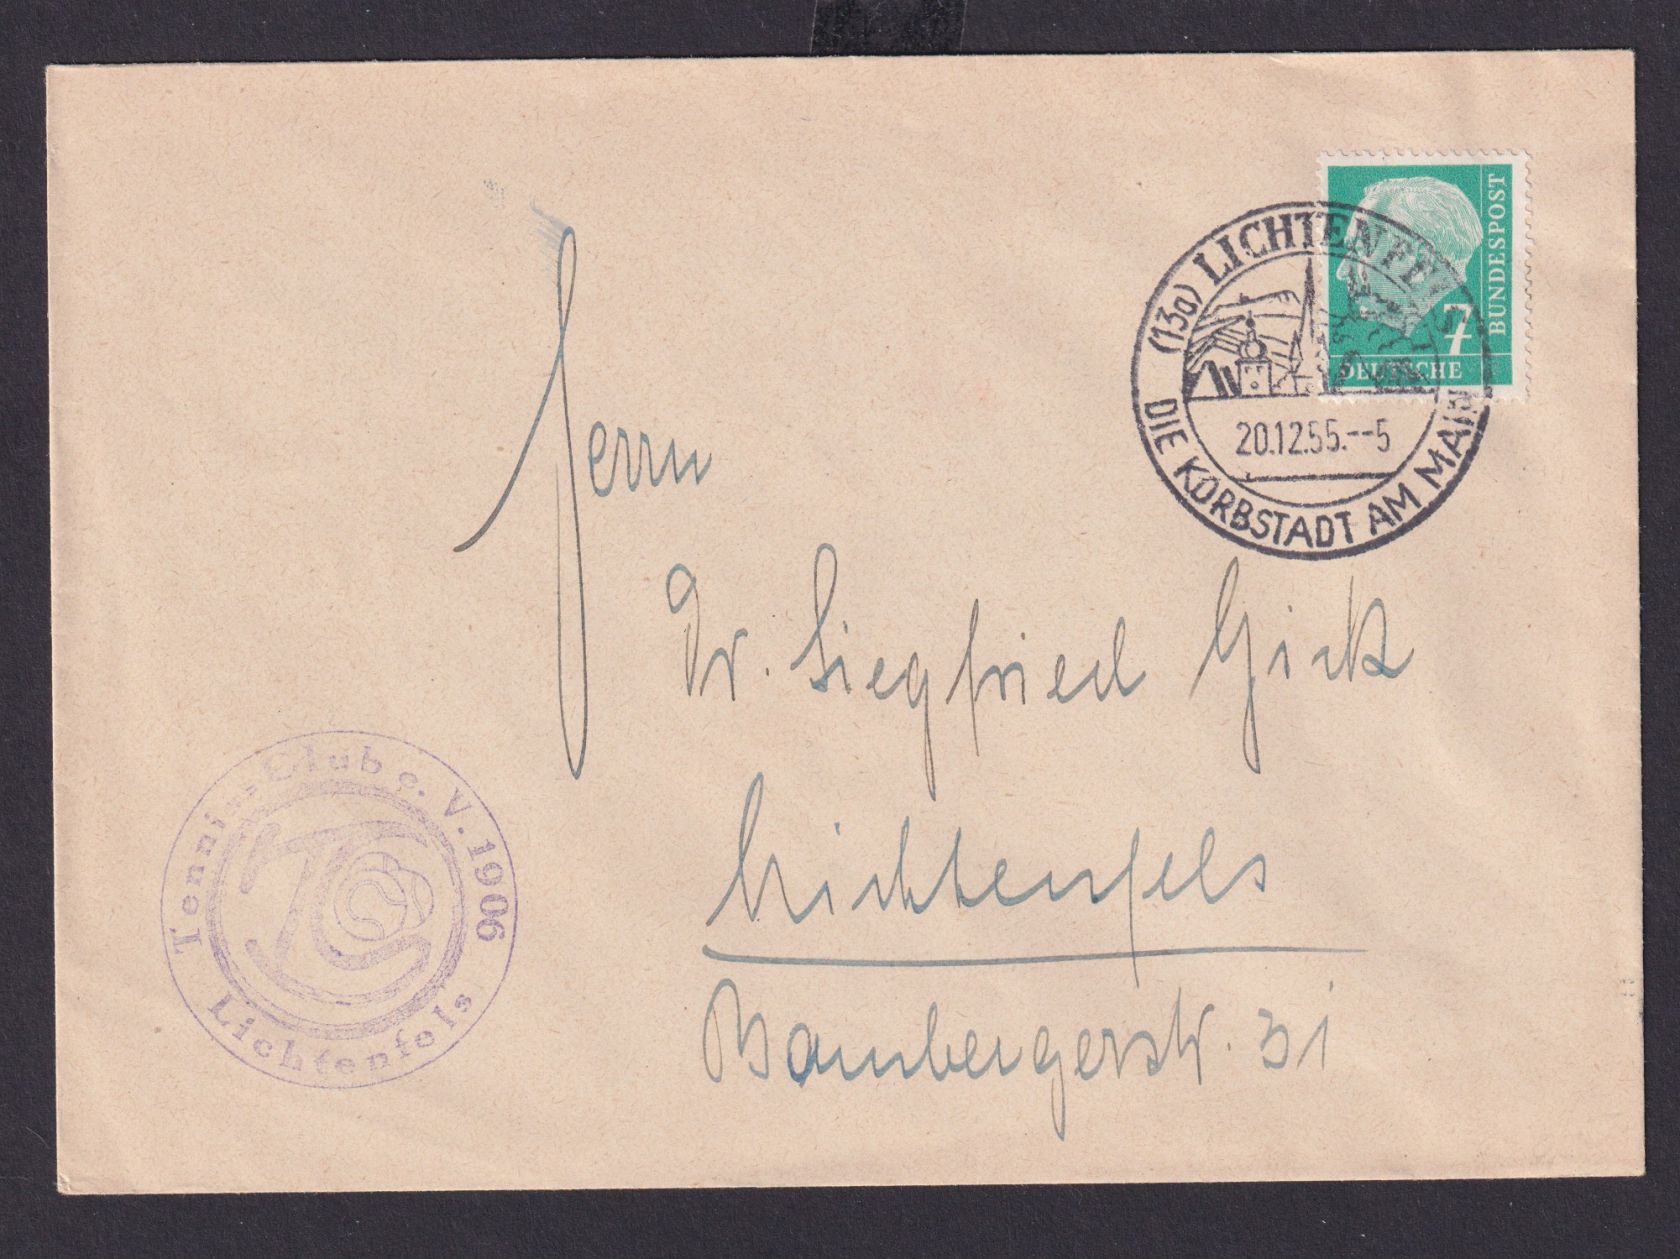 BUNDESPOST
7
DEUTSCHE
(13a) LICHTENFELS
20.12.55.--5
DIE KORBSTADT AM MAIN
Herrn
Dr. Siegfried Gick
Lichtenfels
Bambergerstr. 31
Tennis-Club e. V. 1906
TC
Lichtenfels